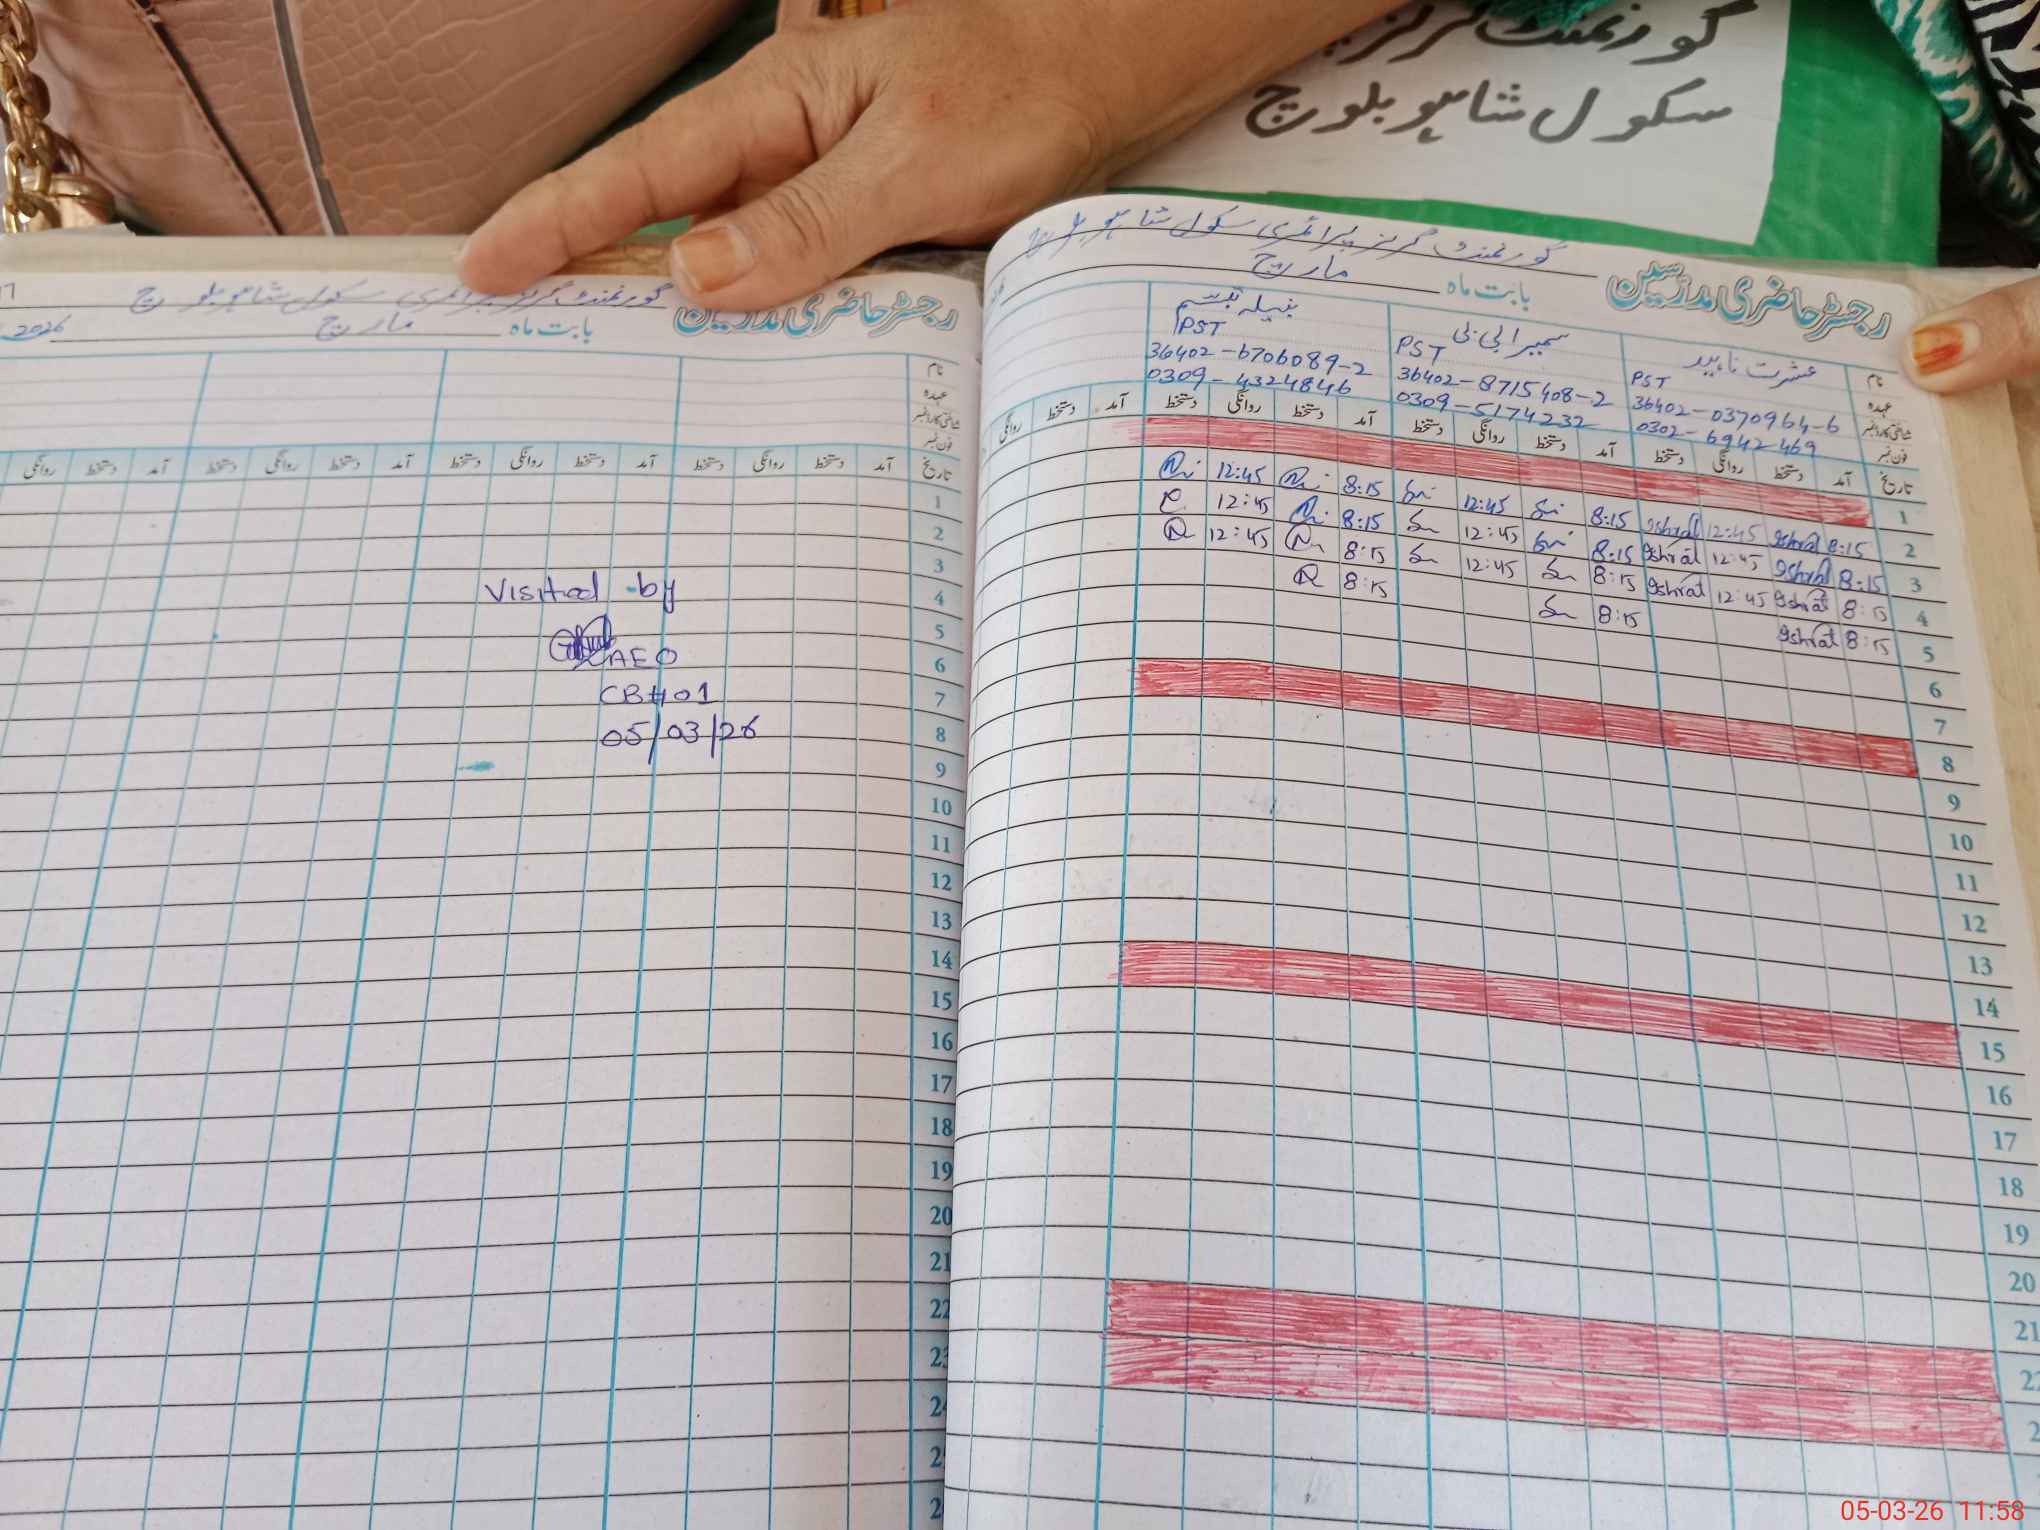 گورنمنٹ گرلز
سکول شاہو بلوچ
رجسٹر حاضری مدرسین
گورنمنٹ گرلز پرائمری سکول شاہو بلوچ
بابت ماہ مارچ 2026
نام
عہدہ
شناختی کارڈ نمبر
فون نمبر
تاریخ آمد دستخط روانگی دستخط آمد دستخط روانگی دستخط آمد دستخط روانگی
1
2
3
4
5
6
7
8
9
10
11
12
13
14
15
16
17
18
19
20
21
22
23
Visited by
AEO
CB#01
05/03/26
رجسٹر حاضری مدرسین
گورنمنٹ گرلز پرائمری سکول شاہو بلوچ
بابت ماہ مارچ
نام عشرت ناہید سمیرا بی بی نبیلہ تبسم
عہدہ PST PST PST
شناختی کارڈ نمبر 36402-0370964-6 36402-8715408-2 36402-6706089-2
فون نمبر 0302-6942469 0309-5174232 0309-4324846
تاریخ آمد دستخط روانگی دستخط آمد دستخط روانگی دستخط آمد دستخط روانگی دستخط آمد دستخط روانگی
1
2 8:15 Ishrat 12:45 Ishrat 8:15 12:45 8:15 12:45
3 8:15 Ishrat 12:45 Ishrat 8:15 12:45 8:15 12:45
4 8:15 Ishrat 12:45 Ishrat 8:15 12:45 8:15 12:45
5 8:15 Ishrat 8:15 8:15
6
7
8
9
10
11
12
13
14
15
16
17
18
19
20
21
05-03-26 11:58